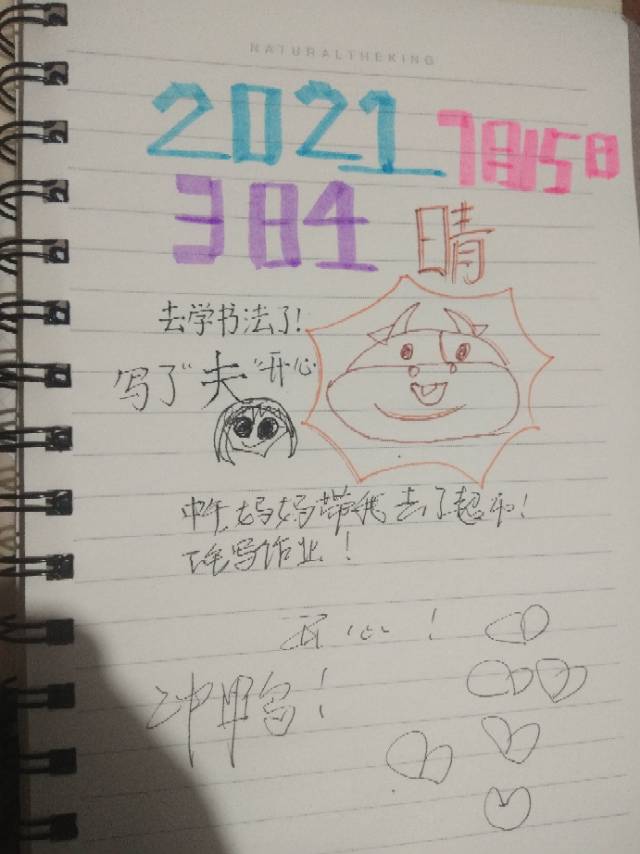 NATURALTHEKING
2021 7月15日
384 晴
去学书法了!
写了“夫”开心
中午妈妈带我去了超市!
下午写作业!
开心!
冲鸭!